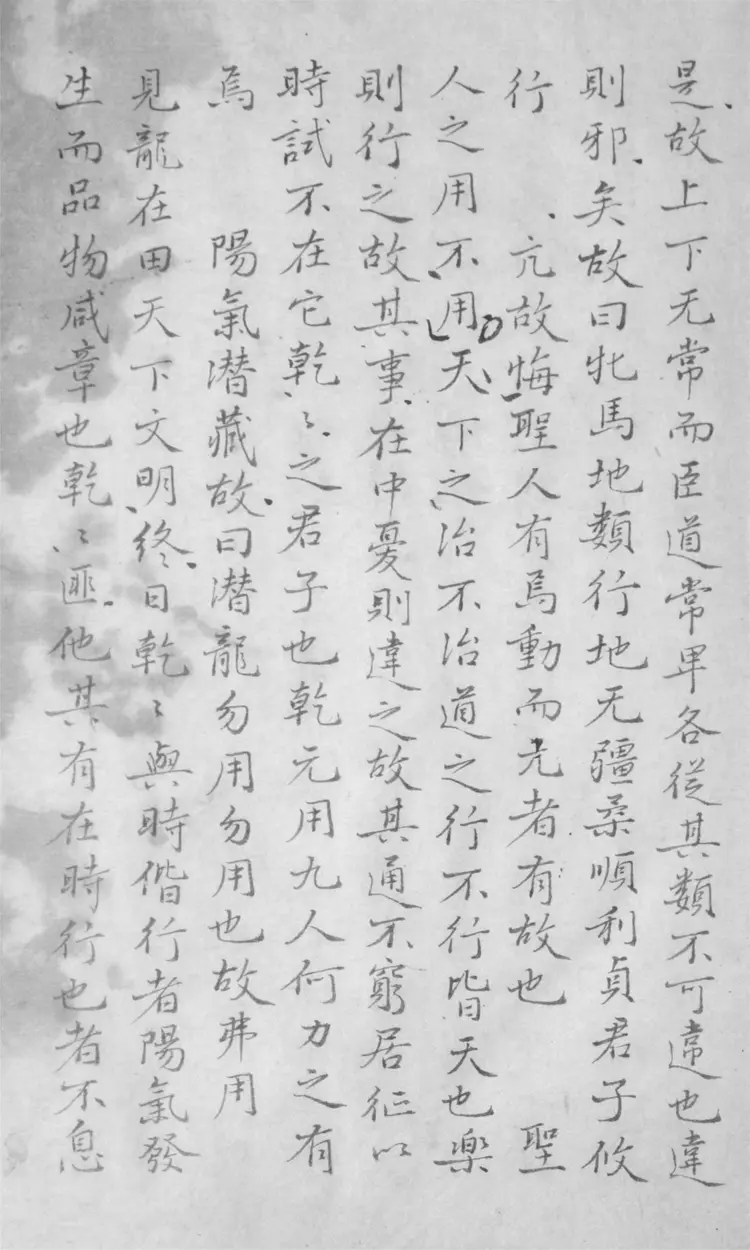 是故上下无常而臣道常卑各從其類不可違也違
則邪矣故曰牝馬地類行地无疆柔順利貞君子攸
行　亢故悔聖人有焉動而亢者有故也　聖
人之用不用天下之治不治道之行不行皆天也樂
則行之故其事在中憂則違之故其通不窮居征以
時試不在它乾〻之君子也乾元用九人何力之有
焉　陽氣潛藏故曰潛龍勿用勿用也故弗用
見龍在田天下文明終日乾〻與時偕行者陽氣發
生而品物咸章也乾〻匪他其有在時行也者不息